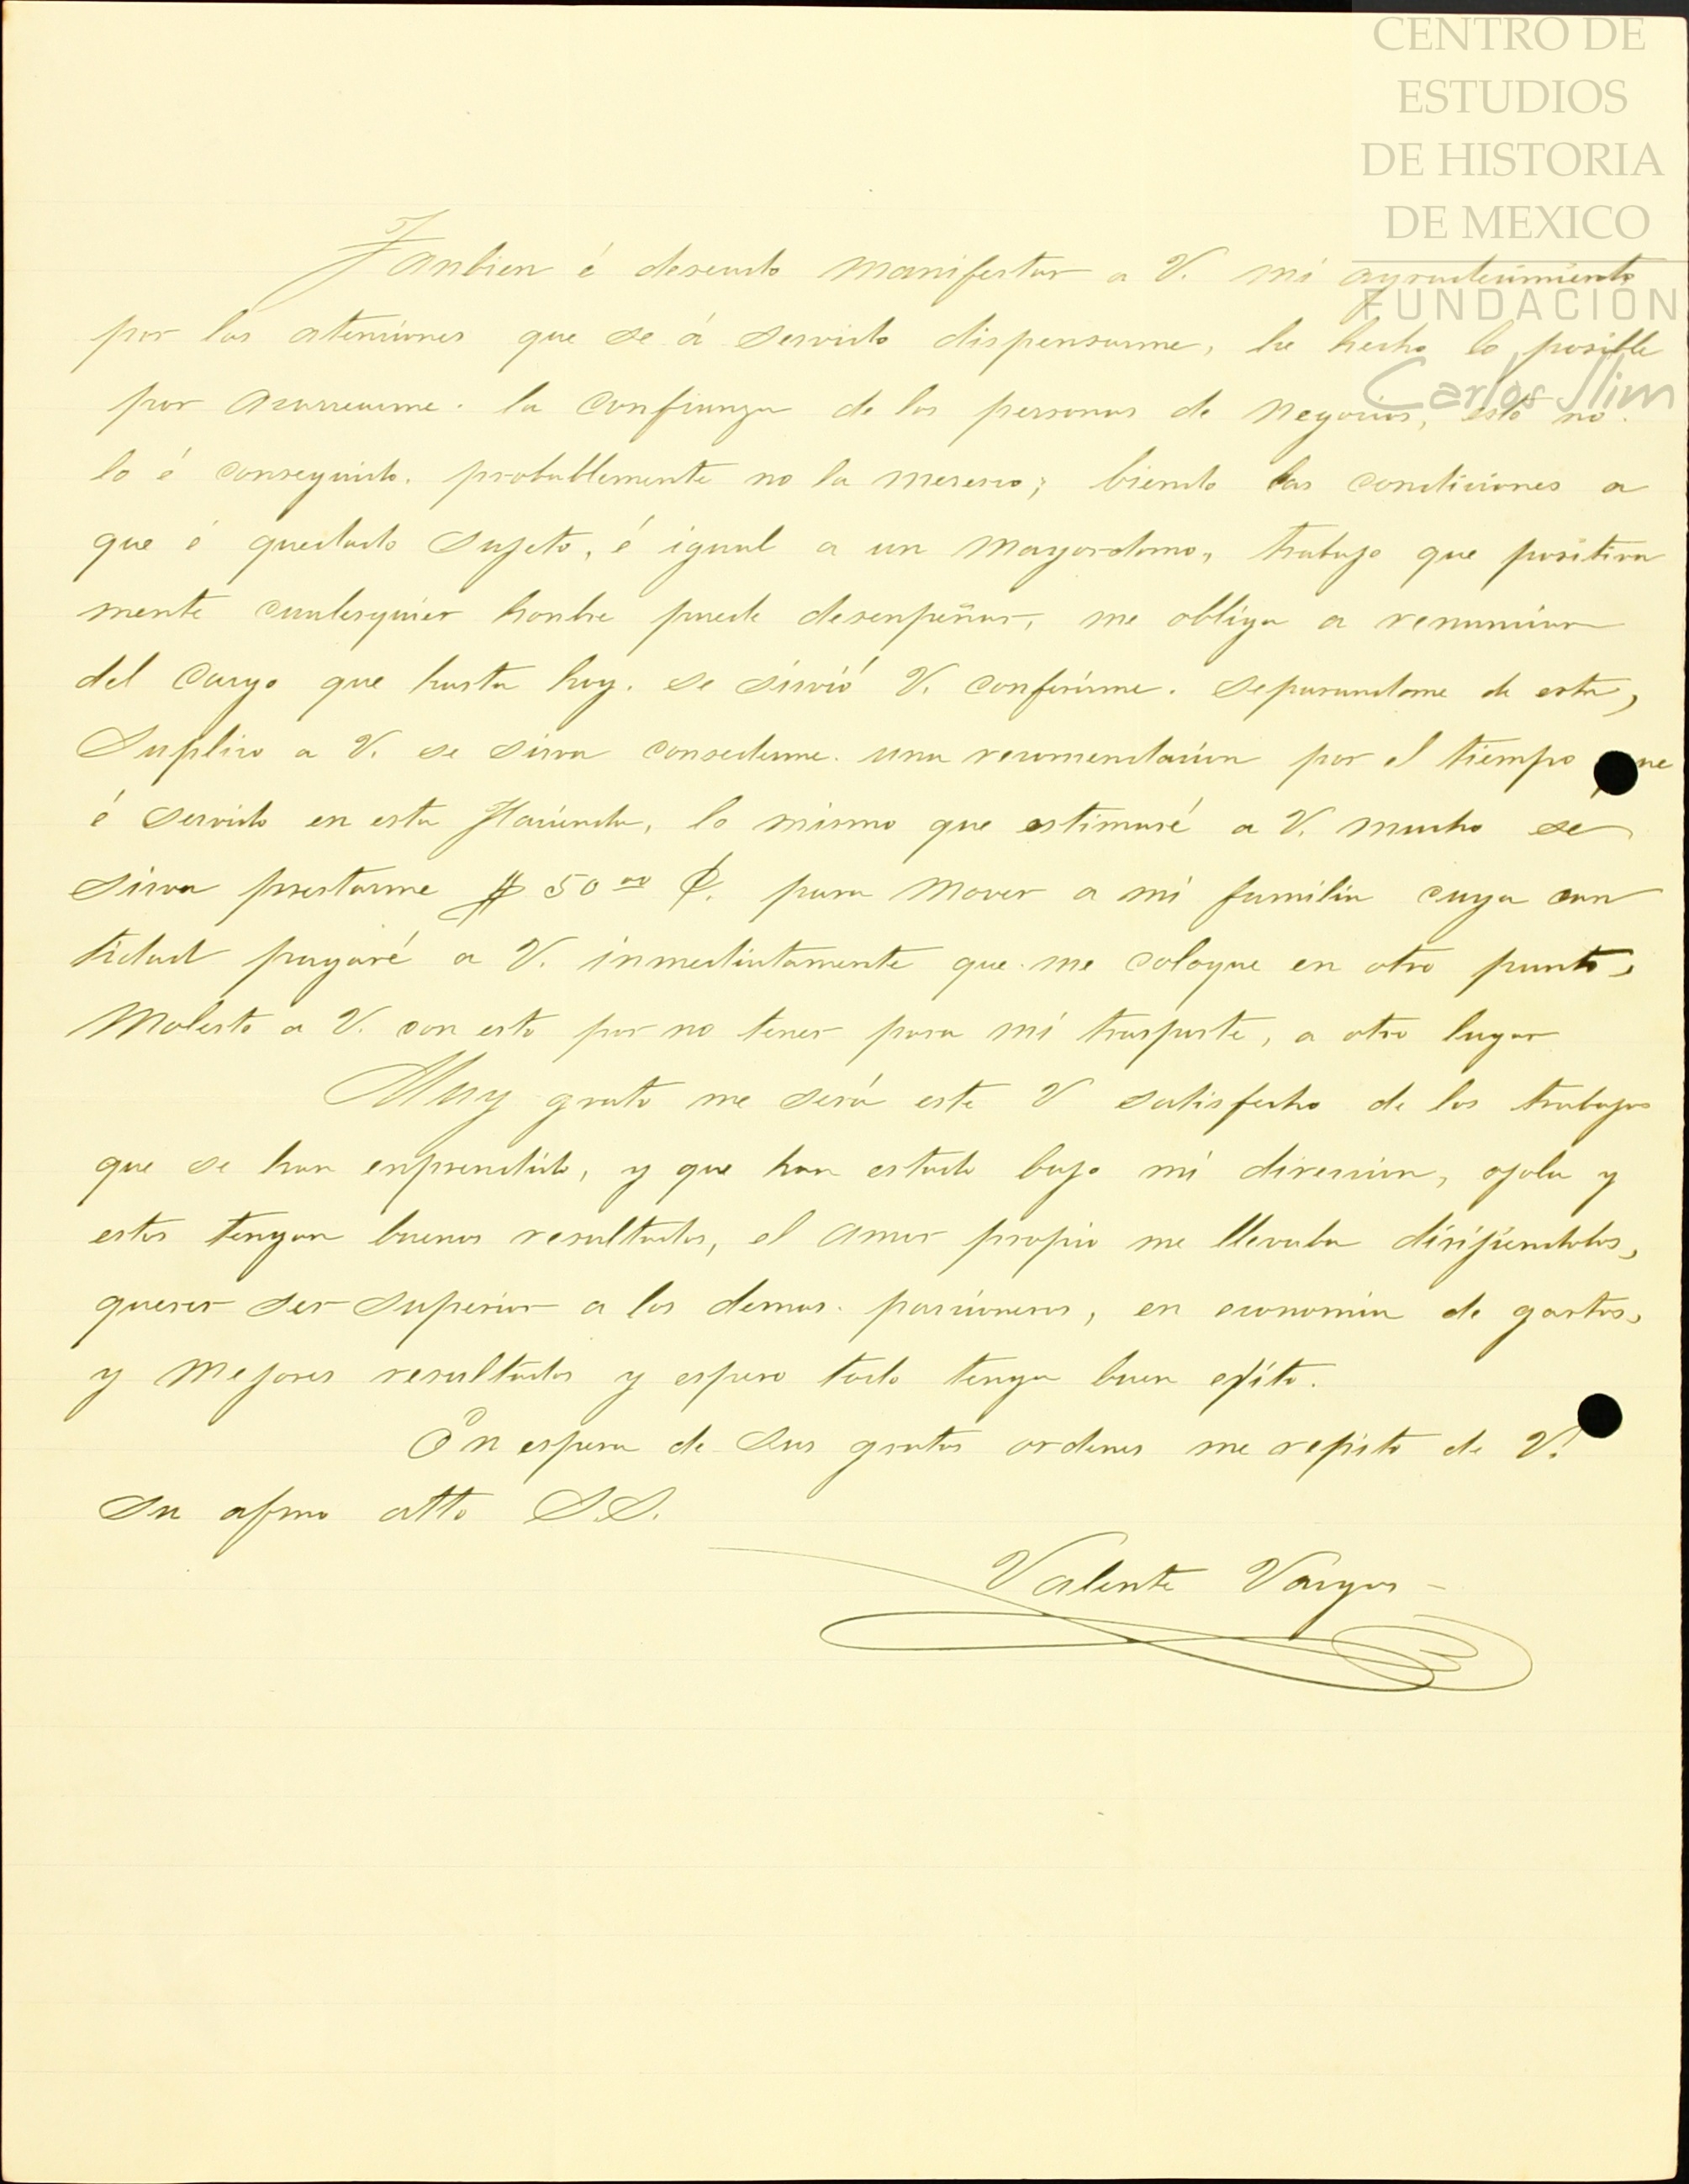 CENTRO DE
ESTUDIOS
DE HISTORIA
DE MEXICO
FUNDACIÓN
Carlos Slim
Tanbien é deseado manifestar a V. mi agradecimiento
por las atenciones que se á servido dispensarme, he hecho lo posible
por acarrearme. la confianza de las personas de negocios, esto no.
lo é conseguido. probablemente no la meresco; biendo las condiciones a
que é quedado sujeto, é igual a un mayordomo, trabajo que positiva
mente cualesquier honbre puede desenpeñar, me obliga a renunciar
del cargo que hasta hoy. se sirvió V. conferirme. separandome de esta,
Suplico a V. se sirva consederme. una recomendacion por el tiempo que
é servido en esta Hacienda, lo mismo que estimaré a V. mucho se
sirva prestarme $ 50 00 ₵. para mover a mi familia cuya can
tidad pagaré a V. inmediatamente que me coloque en otro punto,
Molesto a V. con esto por no tener para mi trasporte, a otro lugar
Muy grato me será este V satisfecho de los trabajos
que se han enprendido, y que han estado bajo mi direccion, ojala y
estos tengan buenos resultados, el amor propio me llevaba dirijiendolos,
querer ser superior a los demas. parcioneros, en economia de gastos,
y mejores resultados y espero todo tenga buen exito.
En espera de sus gratas ordenes me repito de V.
su afmo atto S.S.
Valente Vargas